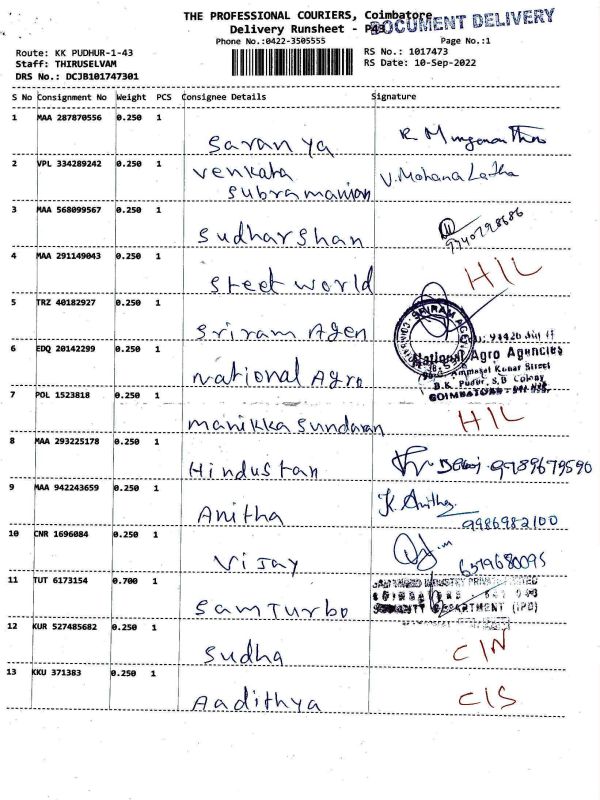 THE PROFESSIONAL COURIERS, Coimbatore
DOCUMENT DELIVERY
Delivery Runsheet -
Phone No.:0422-3505555 Page No.:1
Route: KK PUDHUR-1-43 RS No.: 1017473
Staff: THIRUSELVAM RS Date: 10-Sep-2022
DRS No.: DCJB101747301
S No Consignment No Weight PCS Consignee Details Signature
1 MAA 287870556 0.250 1 Saranya
2 VPL 334289242 0.250 1 Venkata V. Mohana Latha
Subramanian
3 MAA 568099567 0.250 1 Sudharshan
4 MAA 291149043 0.250 1 Steel world H/L
5 TRZ 40182927 0.250 1 Sriram Agen SRIRAM
6 EDQ 20142299 0.250 1 National Agro National Agro Agencies
Ammasai Konar Street
B.K. Pudur, S,B Colony
COIMBATORE
7 POL 1523818 0.250 1 manikka sundaran H/L
8 MAA 293225178 0.250 1 Hindustan 9789679590
9 MAA 942243659 0.250 1 Anitha K. Anitha
9986982100
10 CNR 1696084 0.250 1 Vijay
11 TUT 6173154 0.700 1 Sam Turbo INDUSTRY PRIVATE LIMITED
DEPARTMENT (IPD)
12 KUR 527485682 0.250 1 Sudha C/N
13 KKU 371383 0.250 1 Aadithya C/S